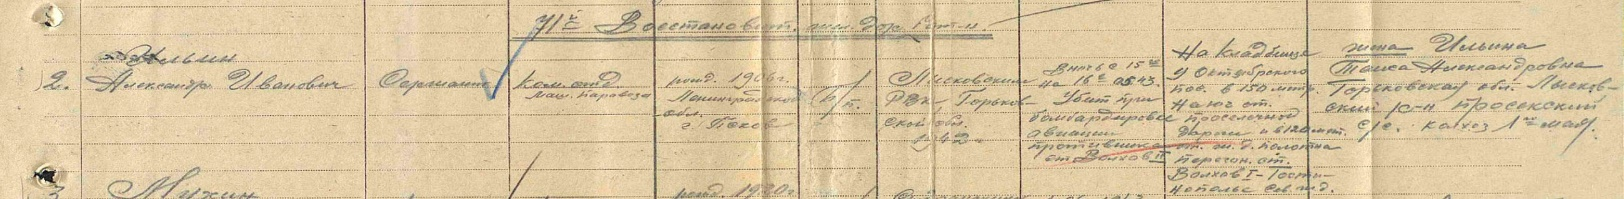 71й Восстановит. жел. дор. бат-н
2. Ильин Александр Иванович
Сержант
ком. отд.
маш. паровоза
рожд. 1906 г.
Ленинградской
обл.
г. Псков
б/п.
Лысковским
РВК Горьков-
ской обл.
1942
В ночь с 15го
на 16е 05.43.
Убит при
бомбардировке
авиации
противника
ст. Волхов II
На кладбище
у Октябрьского
пос. в 150 мтр.
на юг от.
проселочной
дороги и в 120 мт.
от. ж. д. полотна
перегон. ст.
Волхов I – Гости-
нополье Сев. ж.д.
жена Ильина
Таиса Александровна
Горьковская обл. Лысков-
ский р-н Просекский
с/с. колхоз 1го мая
3 Мухин
рожд. 1920 г.